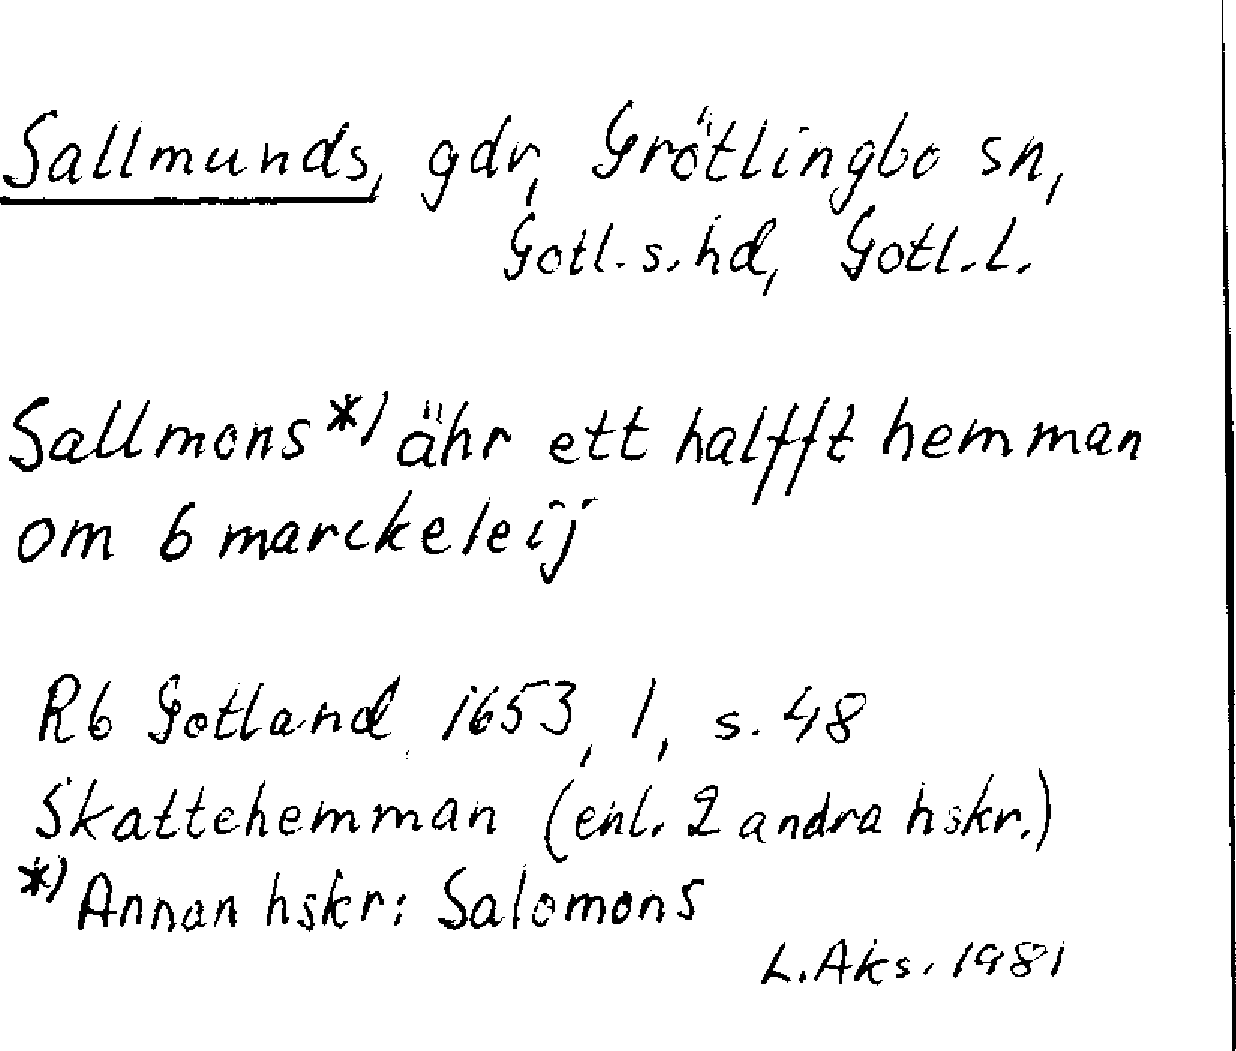 Sallmunds, gdr, Grötlingbo sn,
Gotl. s. hd, Gotl. L.
Sallmons *) ähr ett halfft hemman
om 6 marckeleij
Rb Gotland 1653, 1, s. 48
Skattehemman (enl. 2 andra hskr.)
*) Annan hskr: Salomons
L. Aks. 1981